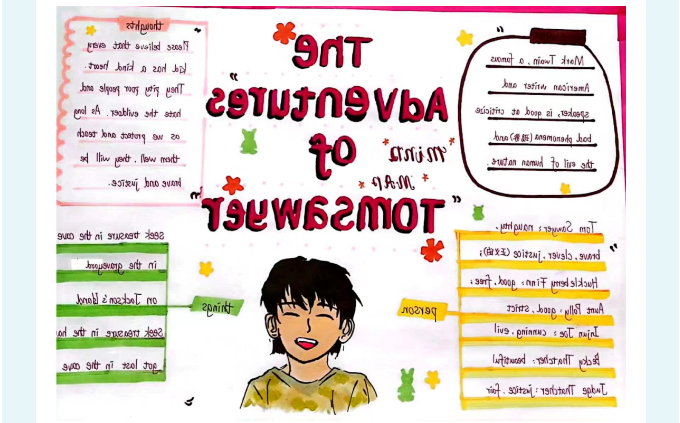 "
The
Adventures
Of
Tomsawyer
"
mind
map
Mark Twain, a famous
American writer and
speaker, is good at criticize
bad phenomena (现象) and
the evil of human nature.
thoughts
Please believe that every
kid has a kind heart.
They pity poor people and
hate the evildoer. As long
as we protect and teach
them well, they will be
brave and justice.
person
Tom Sawyer: naughty,
brave, clever, justice (正义的);
Huckleberry Finn: good, free;
Aunt Polly: good, strict
Injun Joe: cunning, evil
Becky Thatcher: beautiful
Judge Thatcher: justice, fair
things
seek treasure in the cave
in the graveyard
on Jackson's Island
Seek treasure in the ha
got lost in the cave